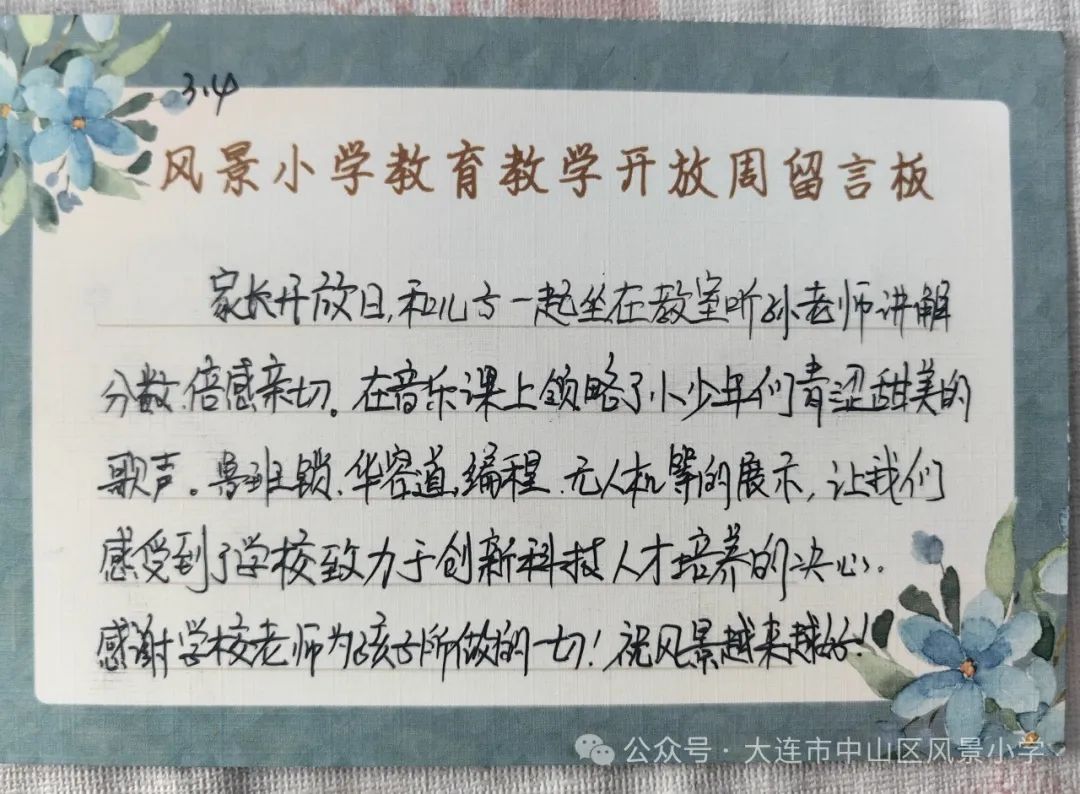 3.4
风景小学教育教学开放周留言板
家长开放日,和儿子一起坐在教室听孙老师讲解
分数,倍感亲切。在音乐课上领略了小少年们青涩甜美的
歌声。鲁班锁、华容道、编程、无人机等的展示,让我们
感受到了学校致力于创新科技人才培养的决心。
感谢学校老师为孩子所做的一切!祝风景越来越好!
公众号·大连市中山区风景小学